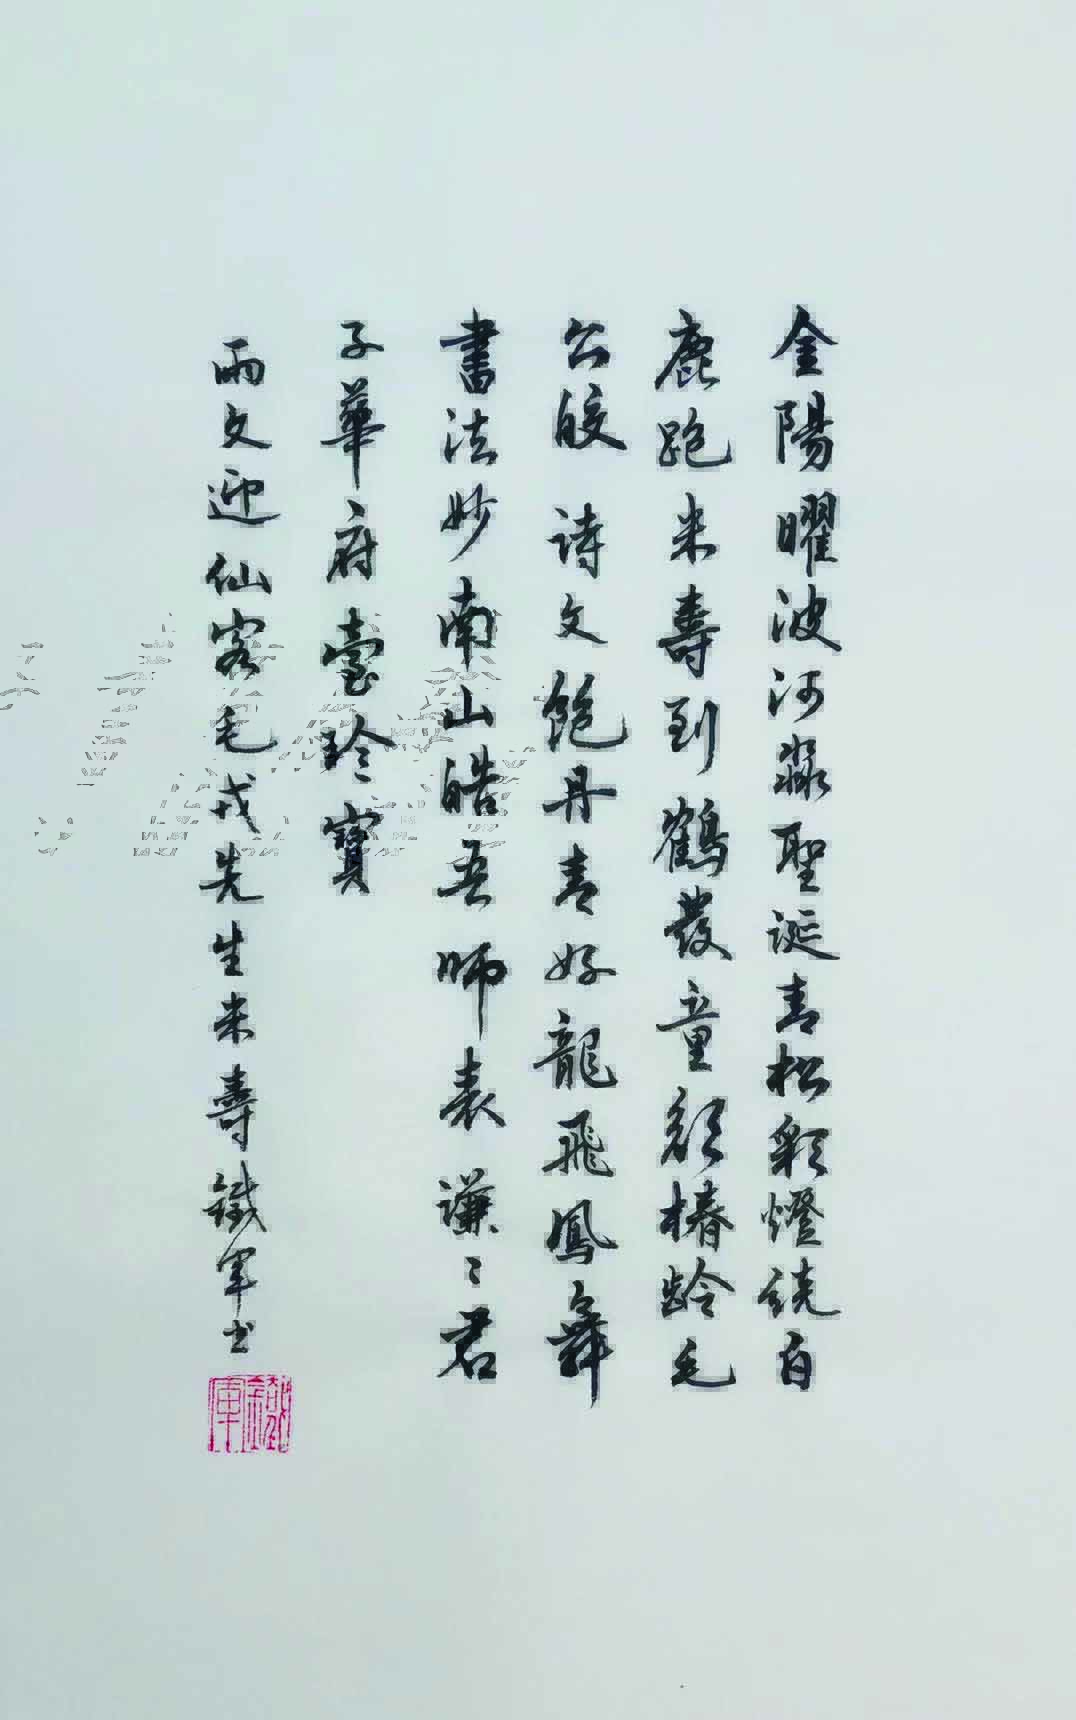 金陽曜波河淼聖誕青松彩燈繞白
鹿跑米壽到鶴發童顏椿齡毛
公皎詩文飽丹青好龍飛鳳舞
書法妙南山皓吾師表謙〻君
子華府臺珍寶
雨文迎仙客毛戎先生米壽鐵軍书
鐵軍